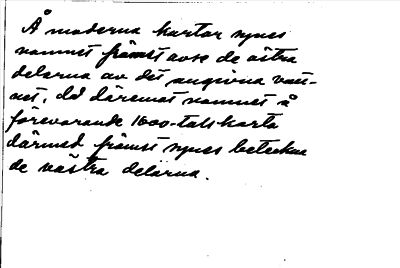 Å moderna kartor synes
namnet främst avse de östra
delarna av det angivna vatt-
net, då däremot namnet å
förevarande 1600-tals karta
därmed främst synes beteckna
de västra delarna.